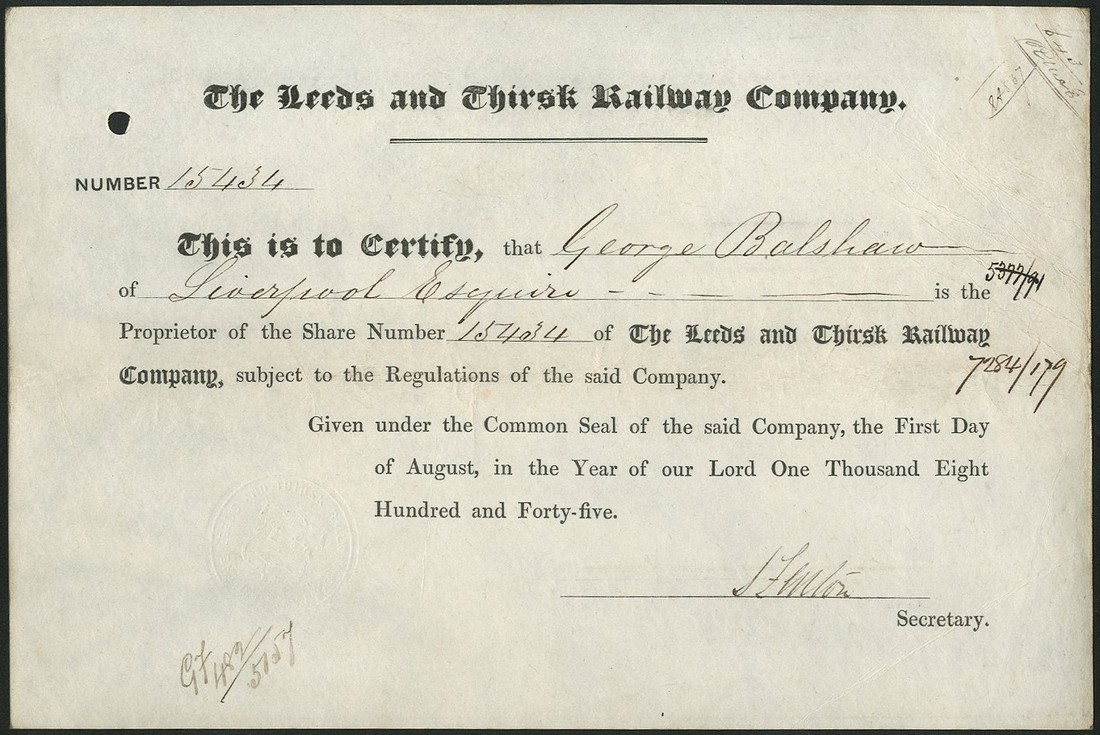 The Leeds and Thirsk Railway Company.
NUMBER 15434
This is to Certify, that George Balshaw
of Liverpool Esquire - - - — is the
5377/91
Proprietor of the Share Number 15434 of The Leeds and Thirsk Railway
Company, subject to the Regulations of the said Company.
7284/179
Given under the Common Seal of the said Company, the First Day
of August, in the Year of our Lord One Thousand Eight
Hundred and Forty-five.
S Fenton
Secretary.
482/5157